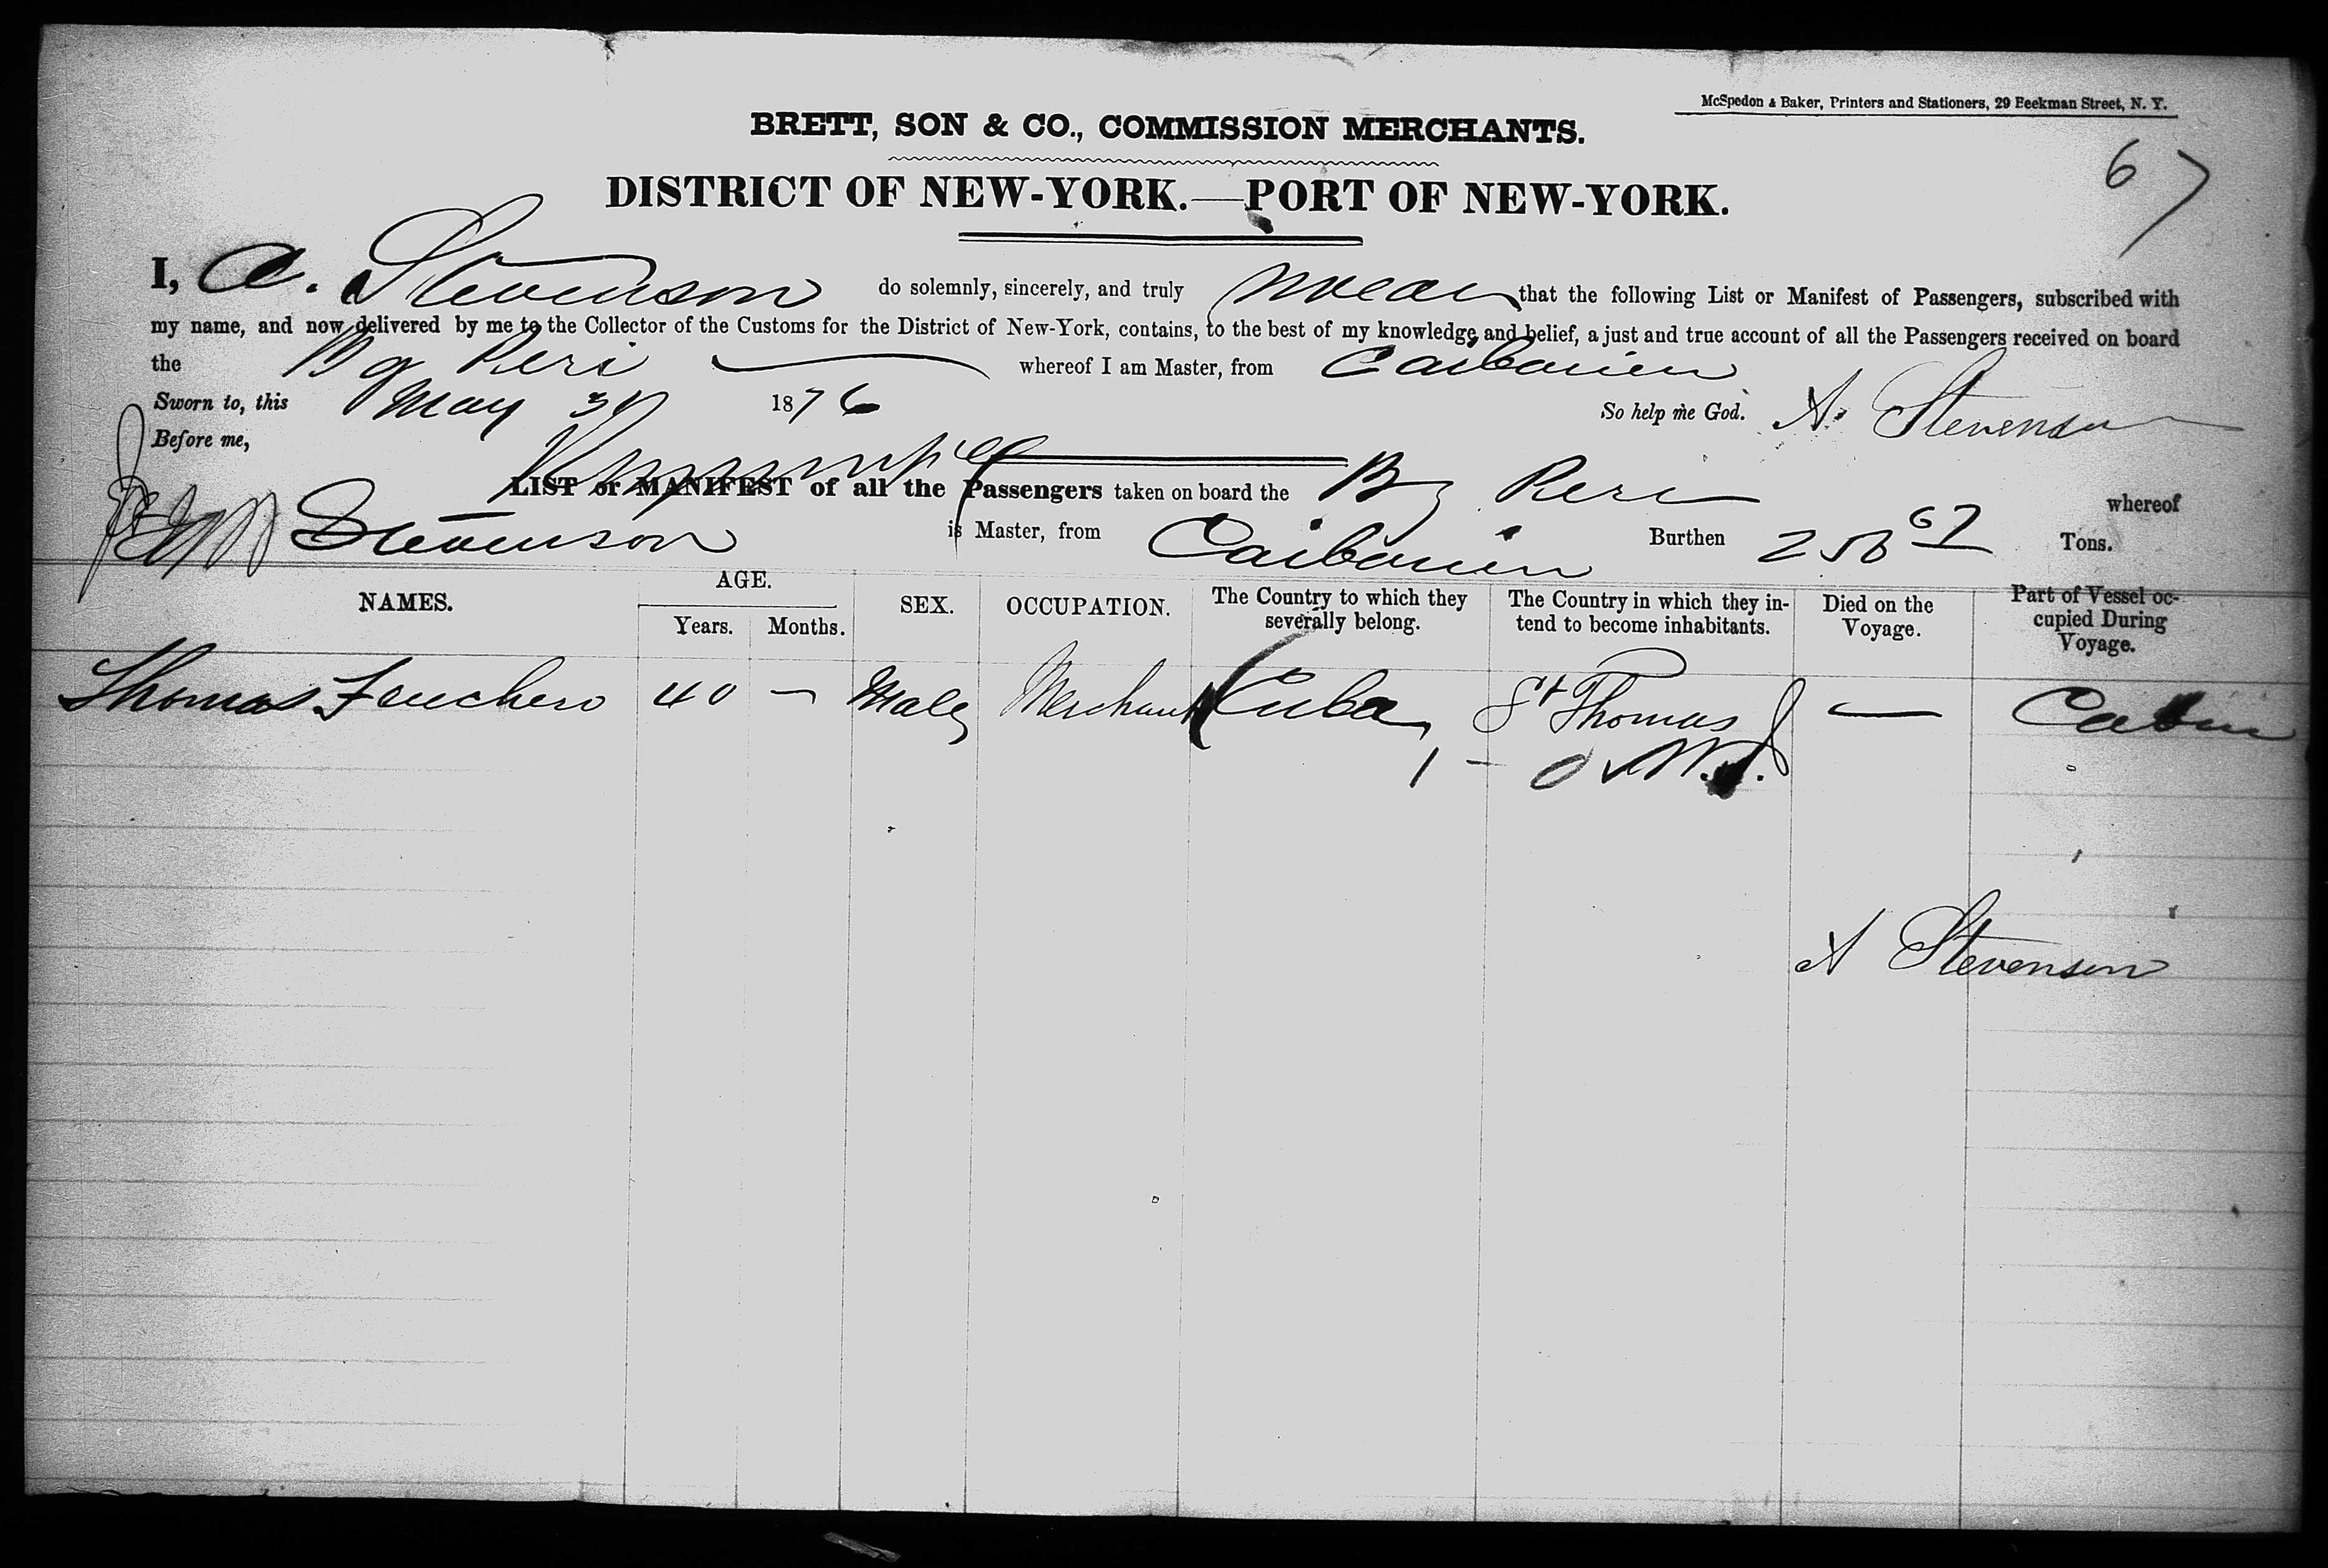 McSpedon & Baker, Printers and Stationers, 29 Beekman Street, N. Y.
BRETT, SON & CO., COMMISSION MERCHANTS.
67
DISTRICT OF NEW-YORK.—PORT OF NEW-YORK.
I, A. Stevenson do solemnly, sincerely, and truly swear that the following List or Manifest of Passengers, subscribed with
my name, and now delivered by me to the Collector of the Customs for the District of New-York, contains, to the best of my knowledge and belief, a just and true account of all the Passengers received on board
the Bg Peri whereof I am Master, from Caibarien
Sworn to, this May 31 1876 So help me God. A. Stevenson
Before me,
LIST or MANIFEST of all the Passengers taken on board the Bg Peri whereof
Stevenson is Master, from Caibarien Burthen 256 67 Tons.
NAMES. AGE. Years. Months. SEX. OCCUPATION. The Country to which they severally belong. The Country in which they intend to become inhabitants. Died on the Voyage. Part of Vessel occupied During Voyage.
Thomas Feuchero 40 — Male Merchant Cuba St Thomas — Cabin
A Stevenson